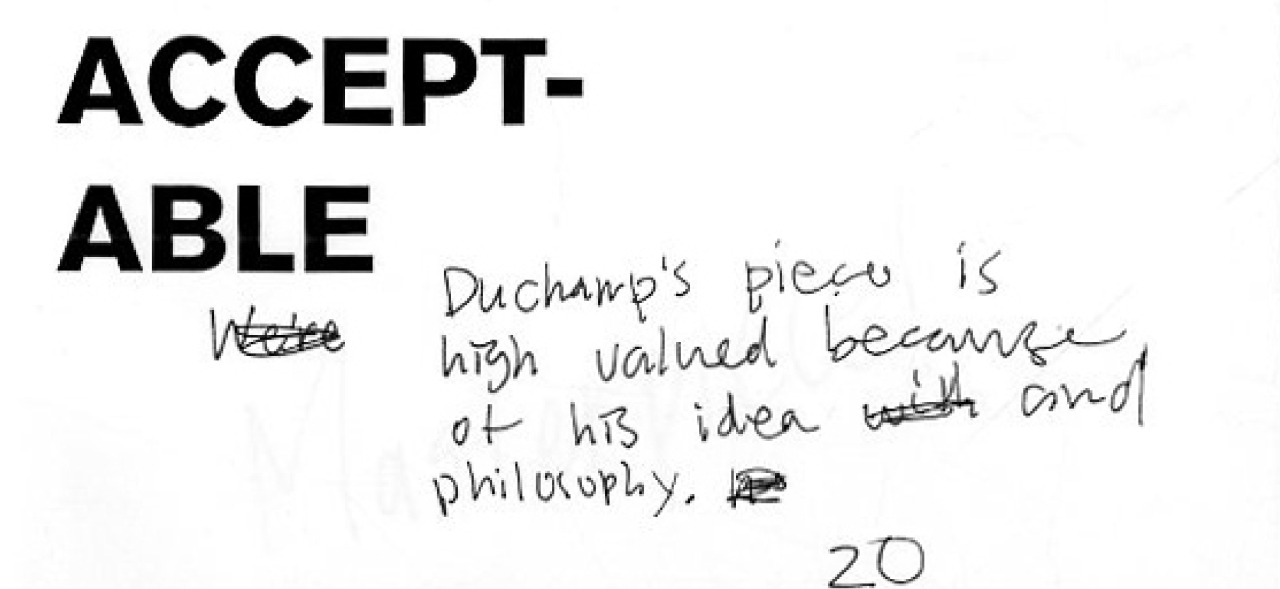 ACCEPT-
ABLE
Duchamp's piece is
high valued because
of his idea and
philosophy.
20